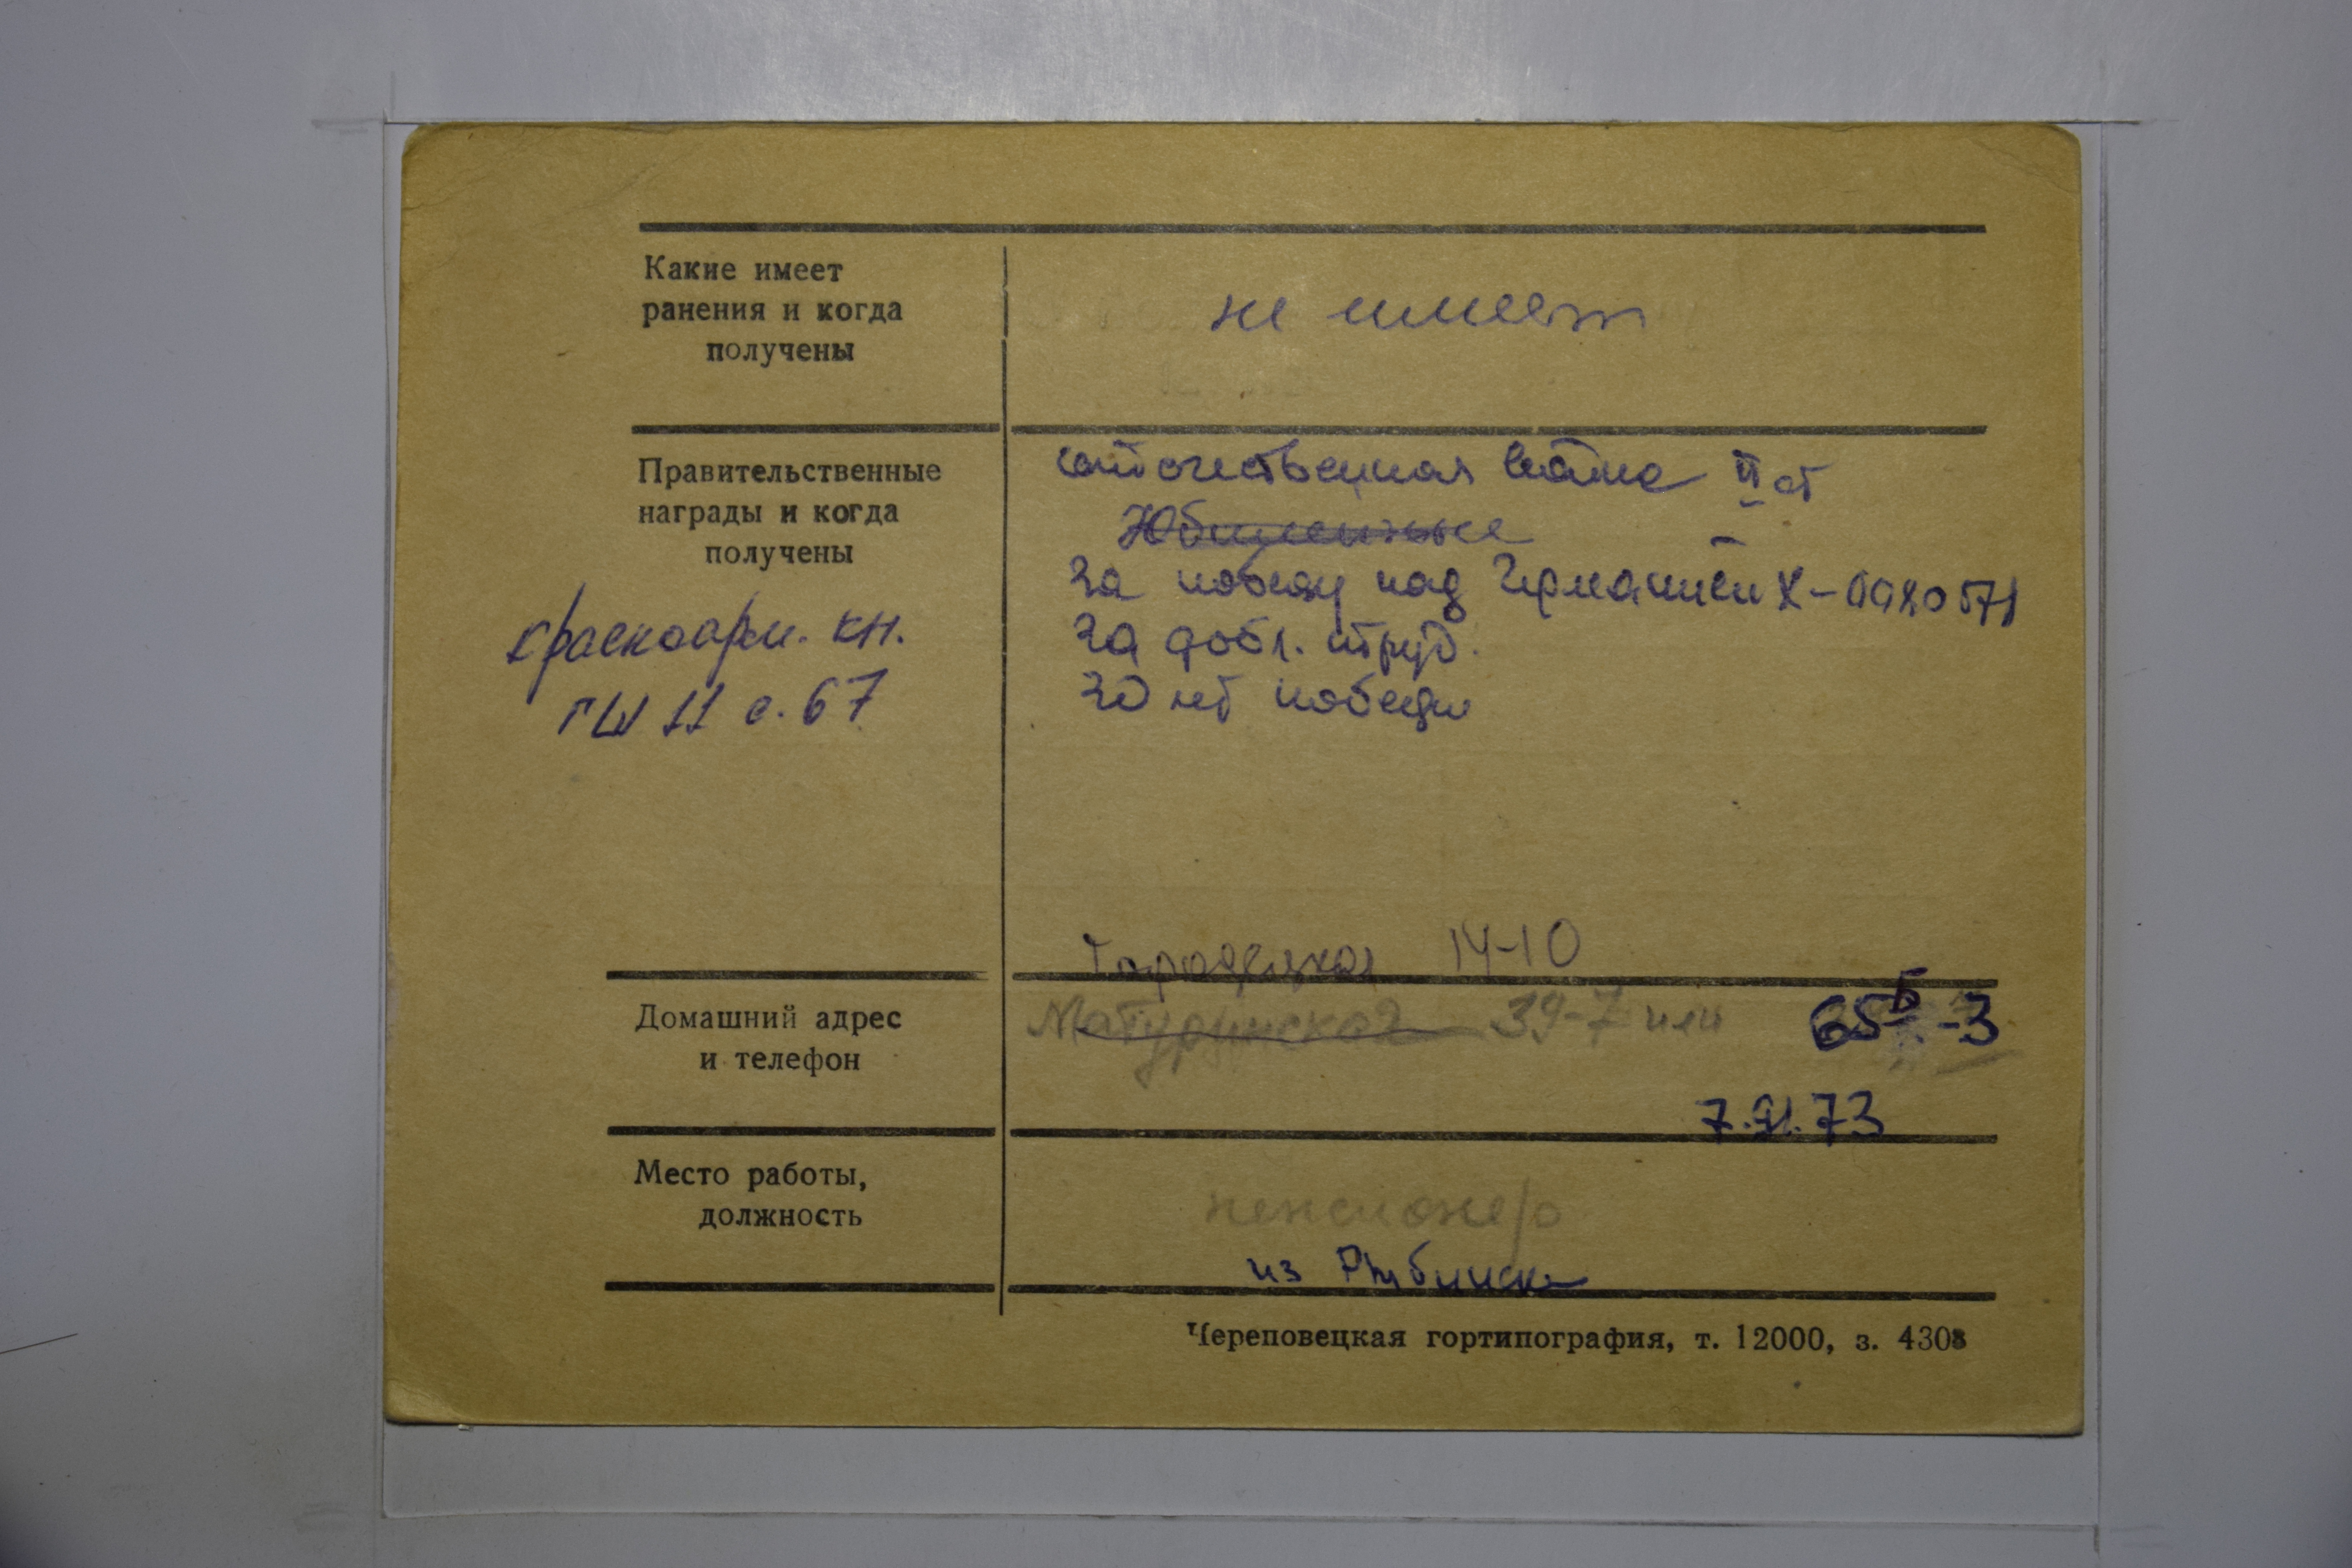 Какие имеет
ранения и когда
получены
не имеет
Правительственные
награды и когда
получены
красноарм. кн.
ГШ 11 с. 67
отечественная война II ст
Юбилейные
За победу над Германией Х-0980571
За добл. труд.
30 лет победы
Городецкая 14-10
Домашний адрес
и телефон
Матуринская 39-7 или 65Б-3
7.91.73
Место работы,
должность
пенсионер
из Рыбинска
Череповецкая гортипография, т. 12000, з. 4303